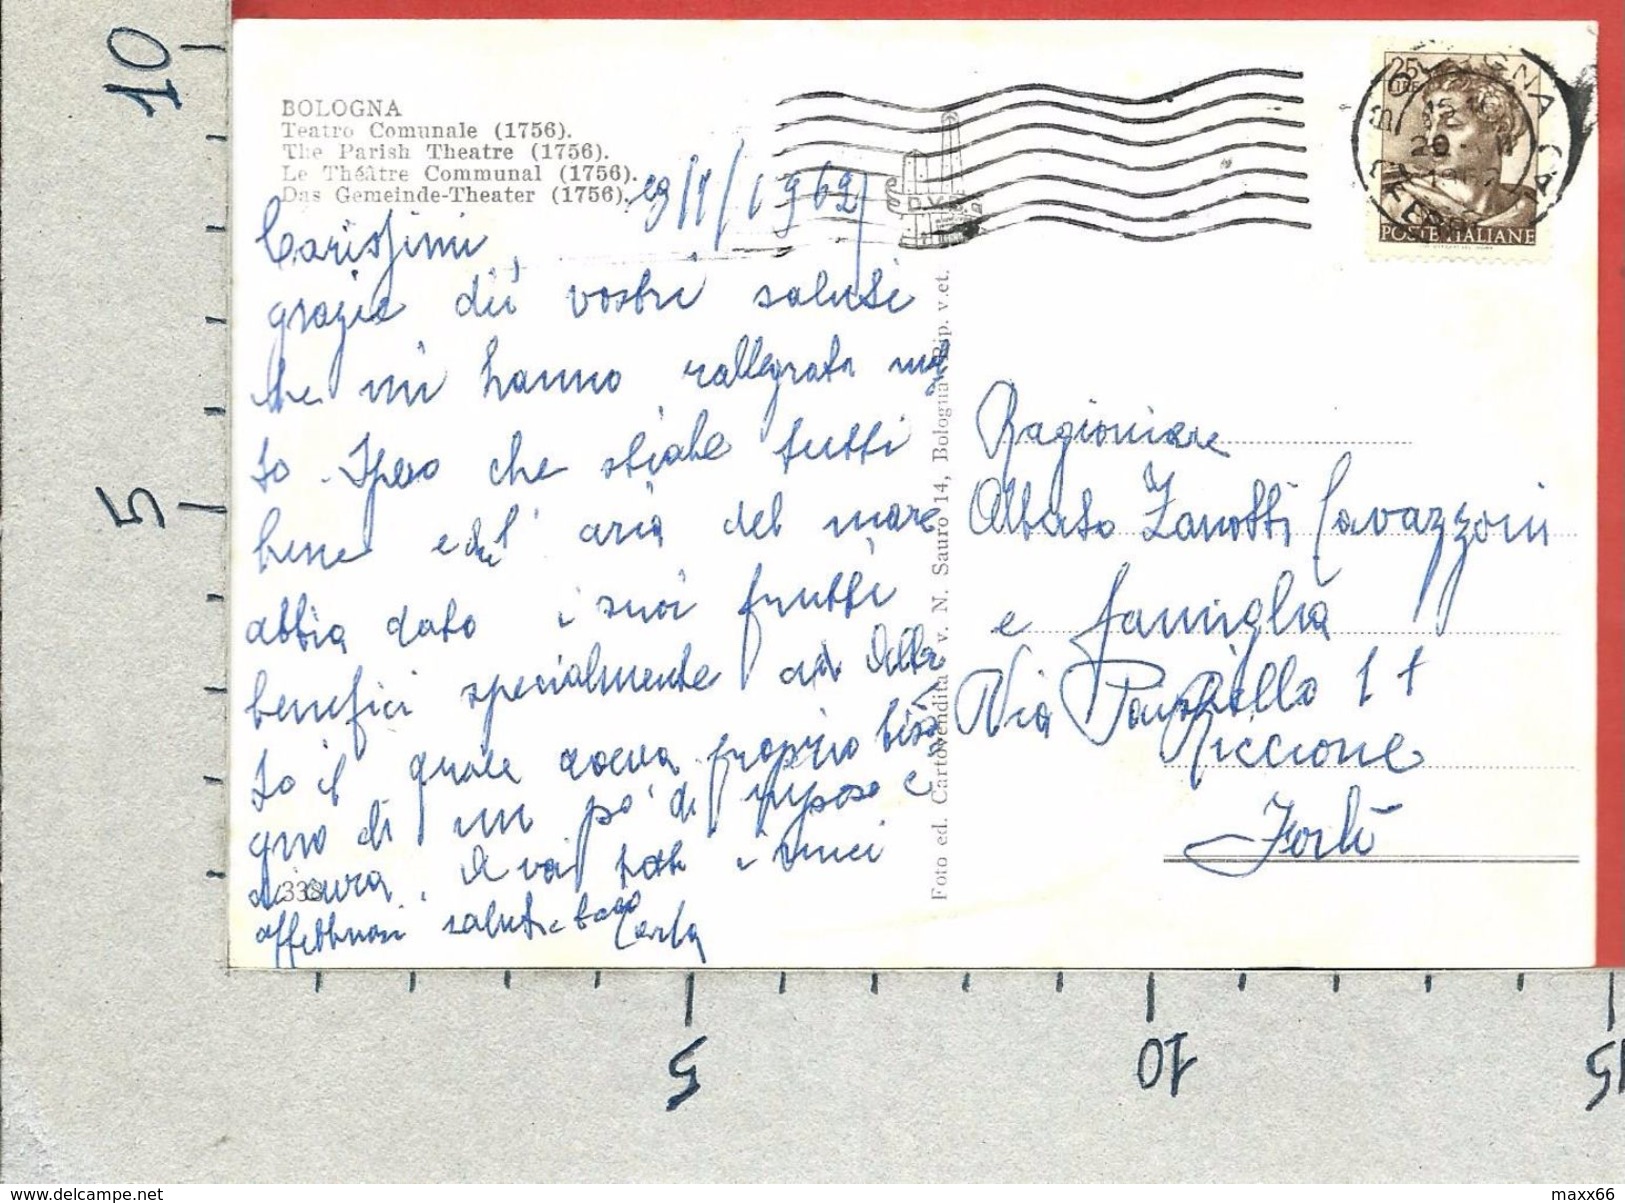 10
5
5
10
15
BOLOGNA
Teatro Comunale (1756).
The Parish Theatre (1756).
Le Théâtre Communal (1756).
Das Gemeinde-Theater (1756).
1962
Carissimi
grazie dei vostri saluti
che mi hanno rallegrata mol
to. Spero che stiate tutti
bene e che l'aria del mare
abbia dato i suoi frutti
benefici specialmente ad Alber
to il quale aveva proprio biso
gno di un po' di riposo e
di aria. A voi tutti i miei
affettuosi saluti e baci
Carla
338
Foto ed. Cartovendita v. N. Sauro 14, Bologna Rip. v.et.
25
LIRE
POSTE ITALIANE
BOLOGNA
Ragioniere
Alberto Zanotti Cavazzoni
e famiglia
Via 11
Riccione
Forlì
www.delcampe.net
maxx66